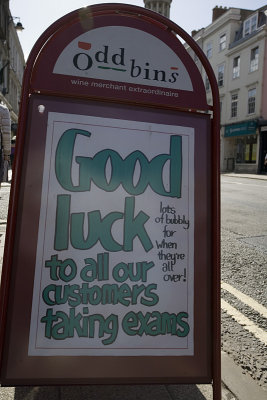 Oddbins
wine merchant extraordinaire
Good
luck
lots
of bubbly
for
when
they're
all
over!
to all our
customers
taking exams